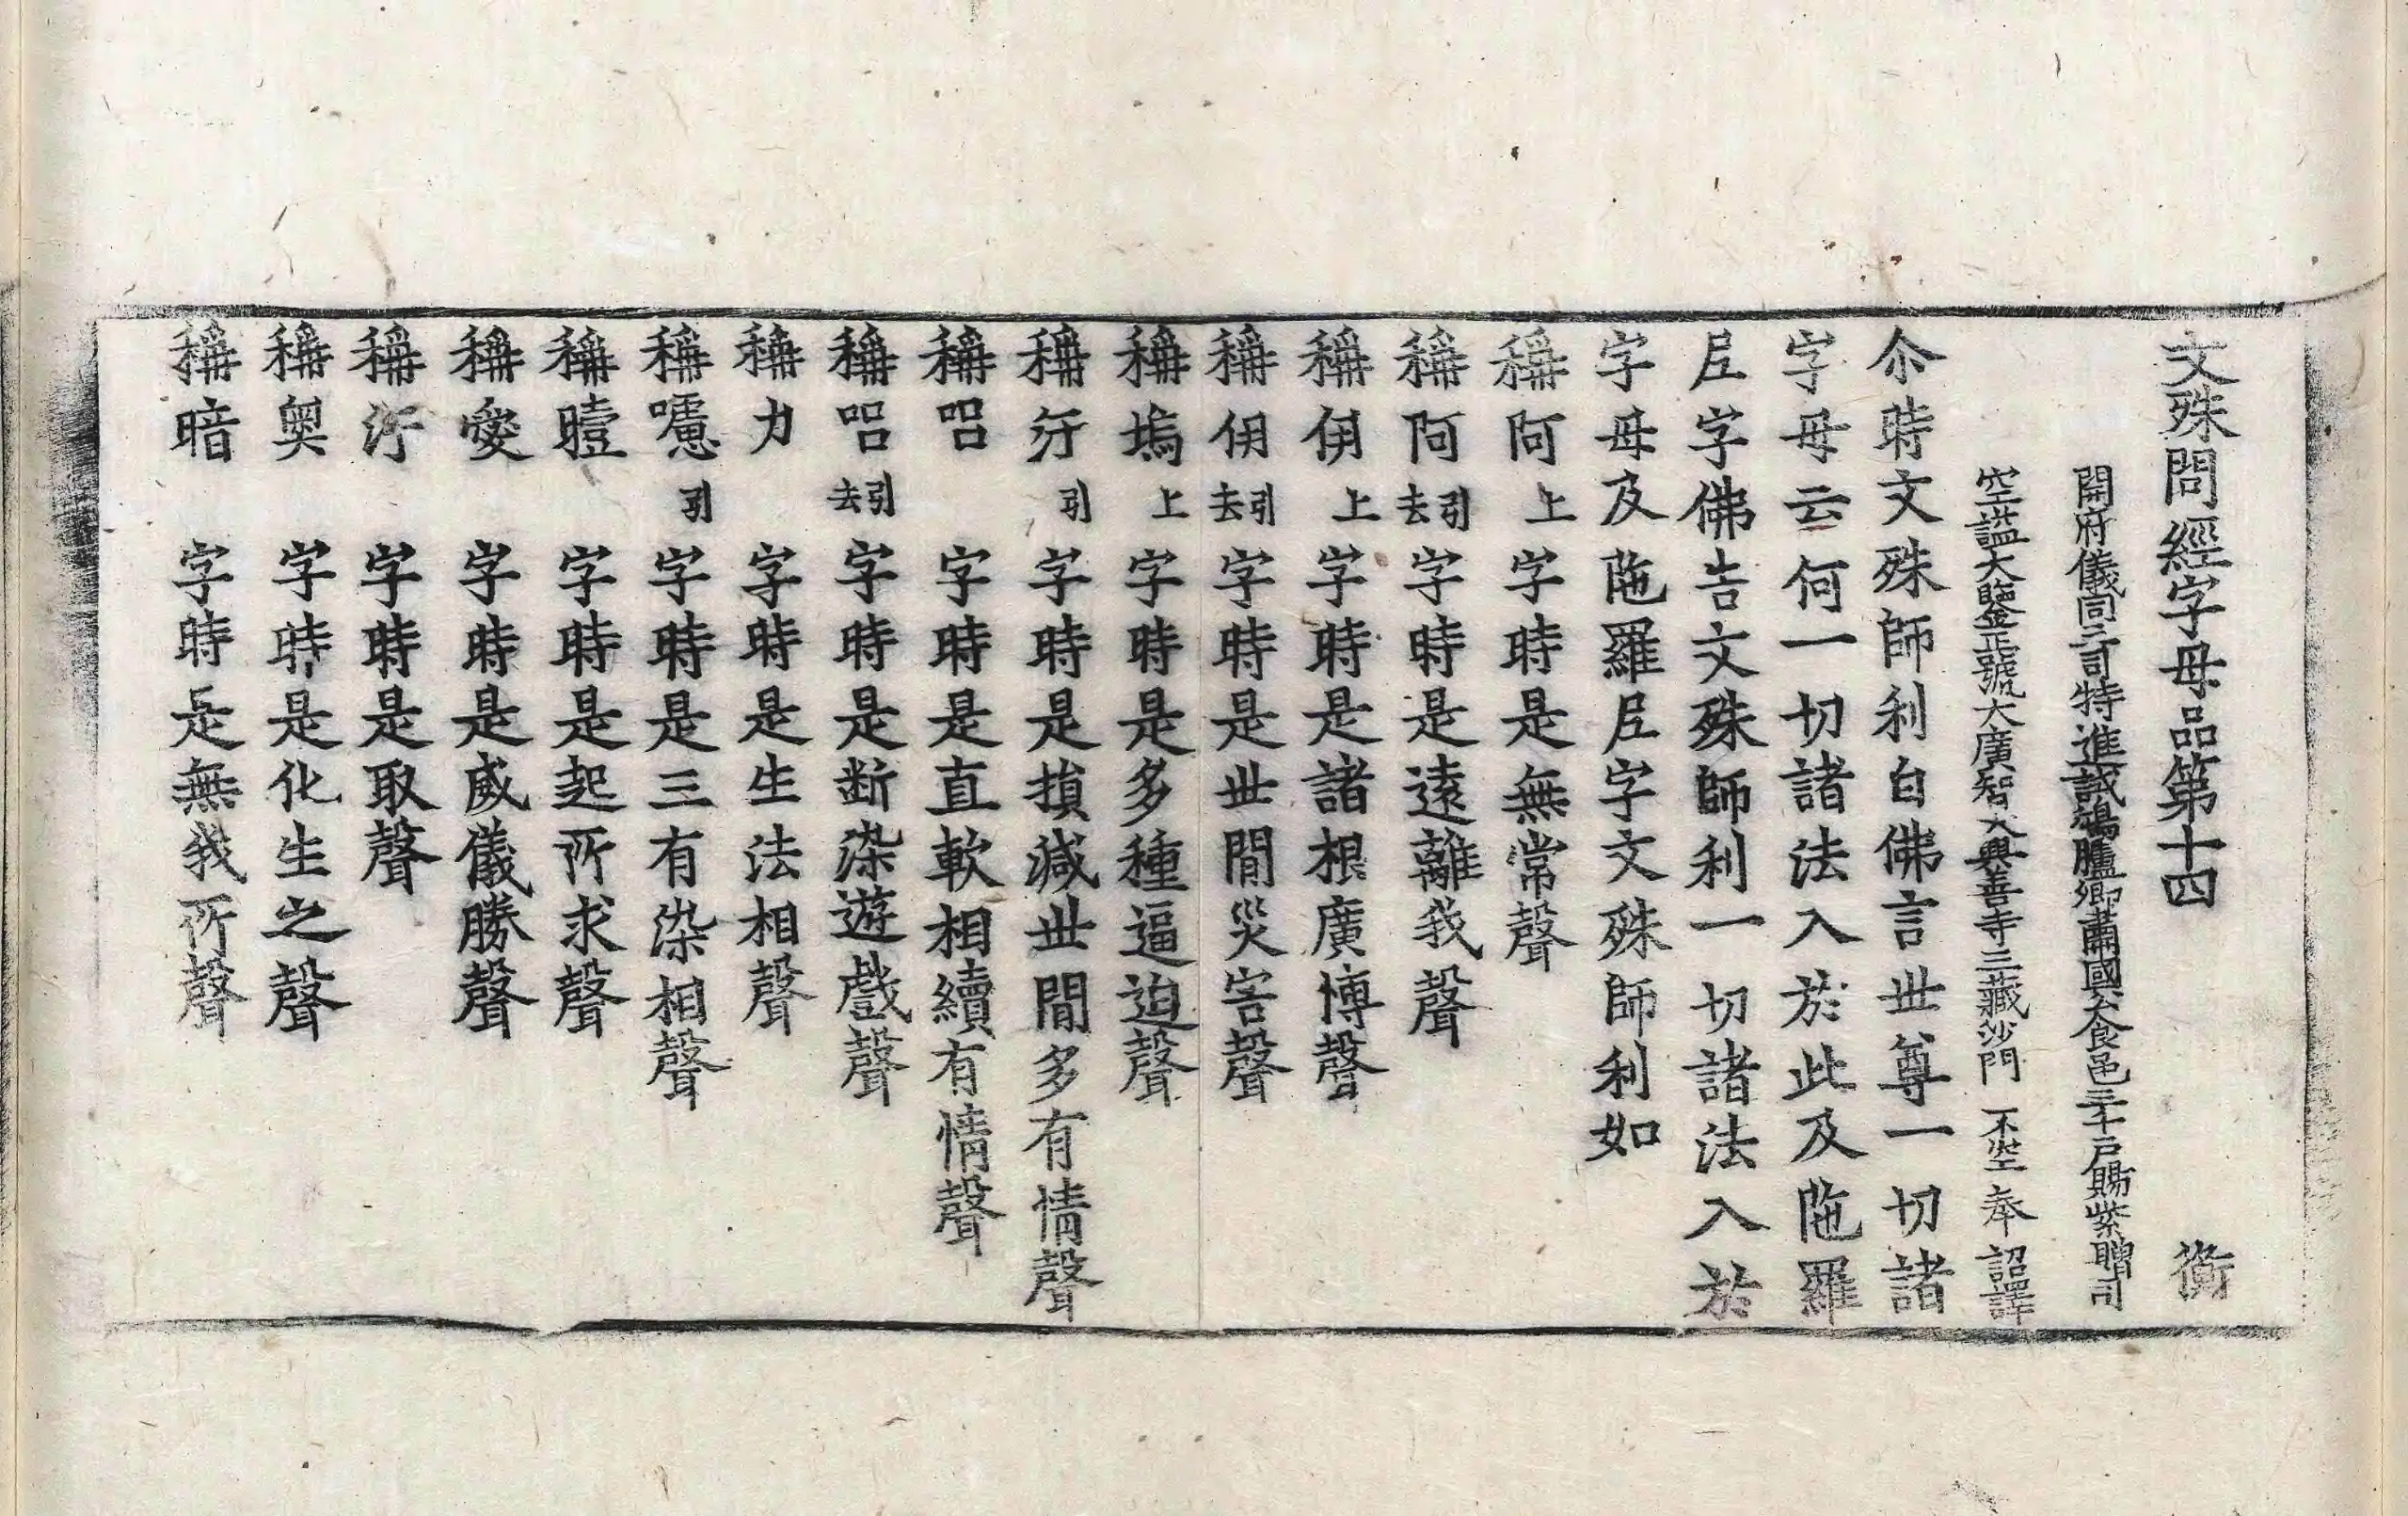 文殊問經字母品第十四 衡
開府儀同三司特進試鴻臚卿肅國公食邑三千戶賜紫贈司
空謚大鑒正號大廣智大興善寺三藏沙門 不空 奉 詔譯
尒時文殊師利白佛言世尊一切諸
字母云何一切諸法入於此及陁羅
𡰱字佛告文殊師利一切諸法入於
字母及陁羅𡰱字文殊師利如
稱阿上字時是無常聲
稱阿引去字時是遠離我聲
稱伊上字時是諸根廣博聲
稱伊引去字時是世間災害聲
稱塢上字時是多種逼迫聲
稱汙引字時是損減世間多有情聲
稱呂字時是直軟相續有情聲
稱呂引去字時是斷染遊戲聲
稱力字時是生法相聲
稱嚧引字時是三有染相聲
稱曀字時是起所求聲
稱愛字時是威儀勝聲
稱汙字時是取聲
稱奧字時是化生之聲
稱暗字時是無我所聲